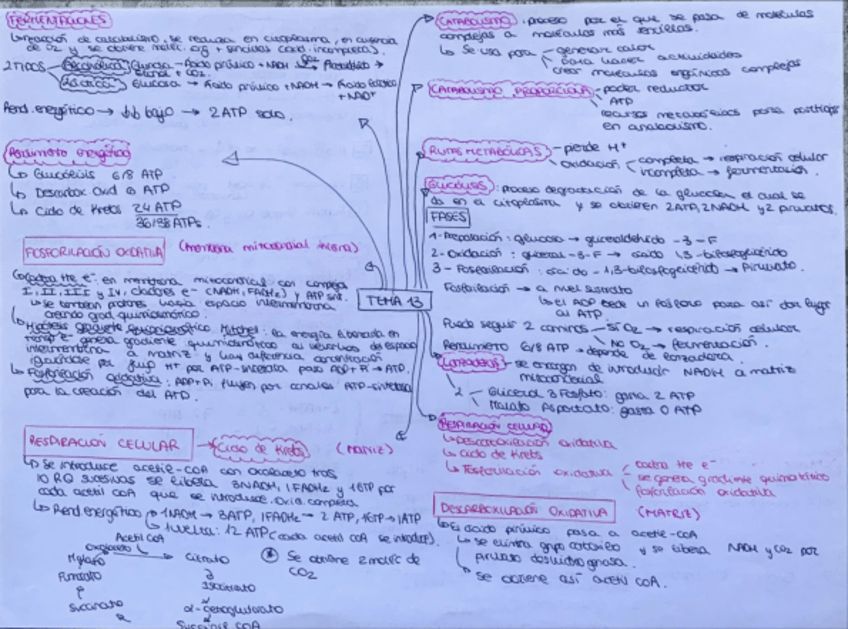 FERMENTACIONES
↳reacción de catabolismo, se realiza en citoplasma, en ausencia
de O2 y se obtiene moléc. org + sencillas (oxid. incompleta).
2 TIPOS
Alcohólica: Glucosa → Ácido pirúvico + NADH → Acetaldehído →
etanol + CO2.
Láctica: Glucosa → Ácido pirúvico + NADH → Ácido láctico
+ NAD+
Rend. energético → ↓↓ bajo → 2 ATP solo.
Rendimiento energético
↳ Glucólisis 6/8 ATP
↳ Descarbox Oxid 6 ATP
↳ Ciclo de Krebs 24 ATP
36/38 ATPs.
FOSFORILACIÓN OXIDATIVA (membrana mitocondrial interna)
↳Cadena tte e-: en membrana mitocondrial con complejo
I, II, III y IV, cladores e- (NADH, FADH2) y ATP sint.
↳ se bombean protones hacia espacio intermembrana
creando grad. quimiosmótico.
↳ Hipótesis gradiente quimiosmótico Mitchell: la energía liberada en
transp e- genera gradiente quimiosmótico al devolver de espacio
intermembrana a matriz y hay diferencia concentración
igualándose por flujo H+ por ATP-sintetasa para ADP + Pi → ATP.
↳ Fosforilación oxidativa: ADP + Pi fluyen por canales ATP-sintetasa
para la creación del ATP.
RESPIRACIÓN CELULAR → Ciclo de Krebs (MATRIZ)
↳ Se introduce acetil-CoA con oxalacetato tras
10 RQ sucesivas se libera 3NADH, 1FADH2 y 1GTP por
cada acetil CoA que se introduce. Oxid completa
↳ Rend energético: 1NADH → 3ATP, 1FADH2 → 2 ATP, 1GTP → 1ATP
↳ 1 vuelta: 12 ATP (cada acetil CoA se introduce).
Acetil CoA
Oxalacetato
Malato
Fumarato
Succinato
Citrato
Isocitrato
α-cetoglutarato
Succinil CoA
Se obtiene 2 moléc de
CO2
TEMA 13
CATABOLISMO: proceso por el que se pasa de moléculas
complejas a moléculas más sencillas.
↳ Se usa para
generar calor
para hacer actividades
crear moléculas orgánicas complejas
CATABOLISMO PROPORCIONA
poder reductor
ATP
recursos metabólicos para participar
en anabolismo.
RUTAS METABÓLICAS
pierde H+
oxidación
completa → respiración celular
incompleta → fermentación.
GLUCÓLISIS: proceso degradación de la glucosa el cual se
da en el citoplasma y se obtienen 2ATP, 2NADH y 2 piruvatos.
FASES
1- Preparación: glucosa → gliceraldehído - 3 - F
2- Oxidación: gliceral - 3 - F → ácido 1,3-bifosfoglicérido
3 - Fosforilación: ácido - 1,3-bifosfoglicérido → Piruvato.
Fosforilación → a nivel sustrato
↳ el ADP cede un fósforo para así dar lugar
al ATP
Puede seguir 2 caminos
Sí O2 → respiración celular
No O2 → fermentación.
Rendimiento 6/8 ATP → depende de lanzadera.
LANZADERAS → se encargan de introducir NADH a matriz
mitocondrial
2
Glicerol 3 Fosfato: gana 2 ATP
Malato Aspartato: gasta 0 ATP
RESPIRACIÓN CELULAR
↳ Descarboxilación oxidativa
↳ Ciclo de Krebs
↳ Fosforilación oxidativa
cadena tte e-
se genera gradiente quimiosmótico
fosforilación oxidativa
DESCARBOXILACIÓN OXIDATIVA (MATRIZ)
↳ El ácido pirúvico pasa a acetil-CoA
↳ se elimina grupo carboxilo y se libera NADH y CO2 por
piruvato deshidrogenasa.
↳ Se obtiene así acetil CoA.